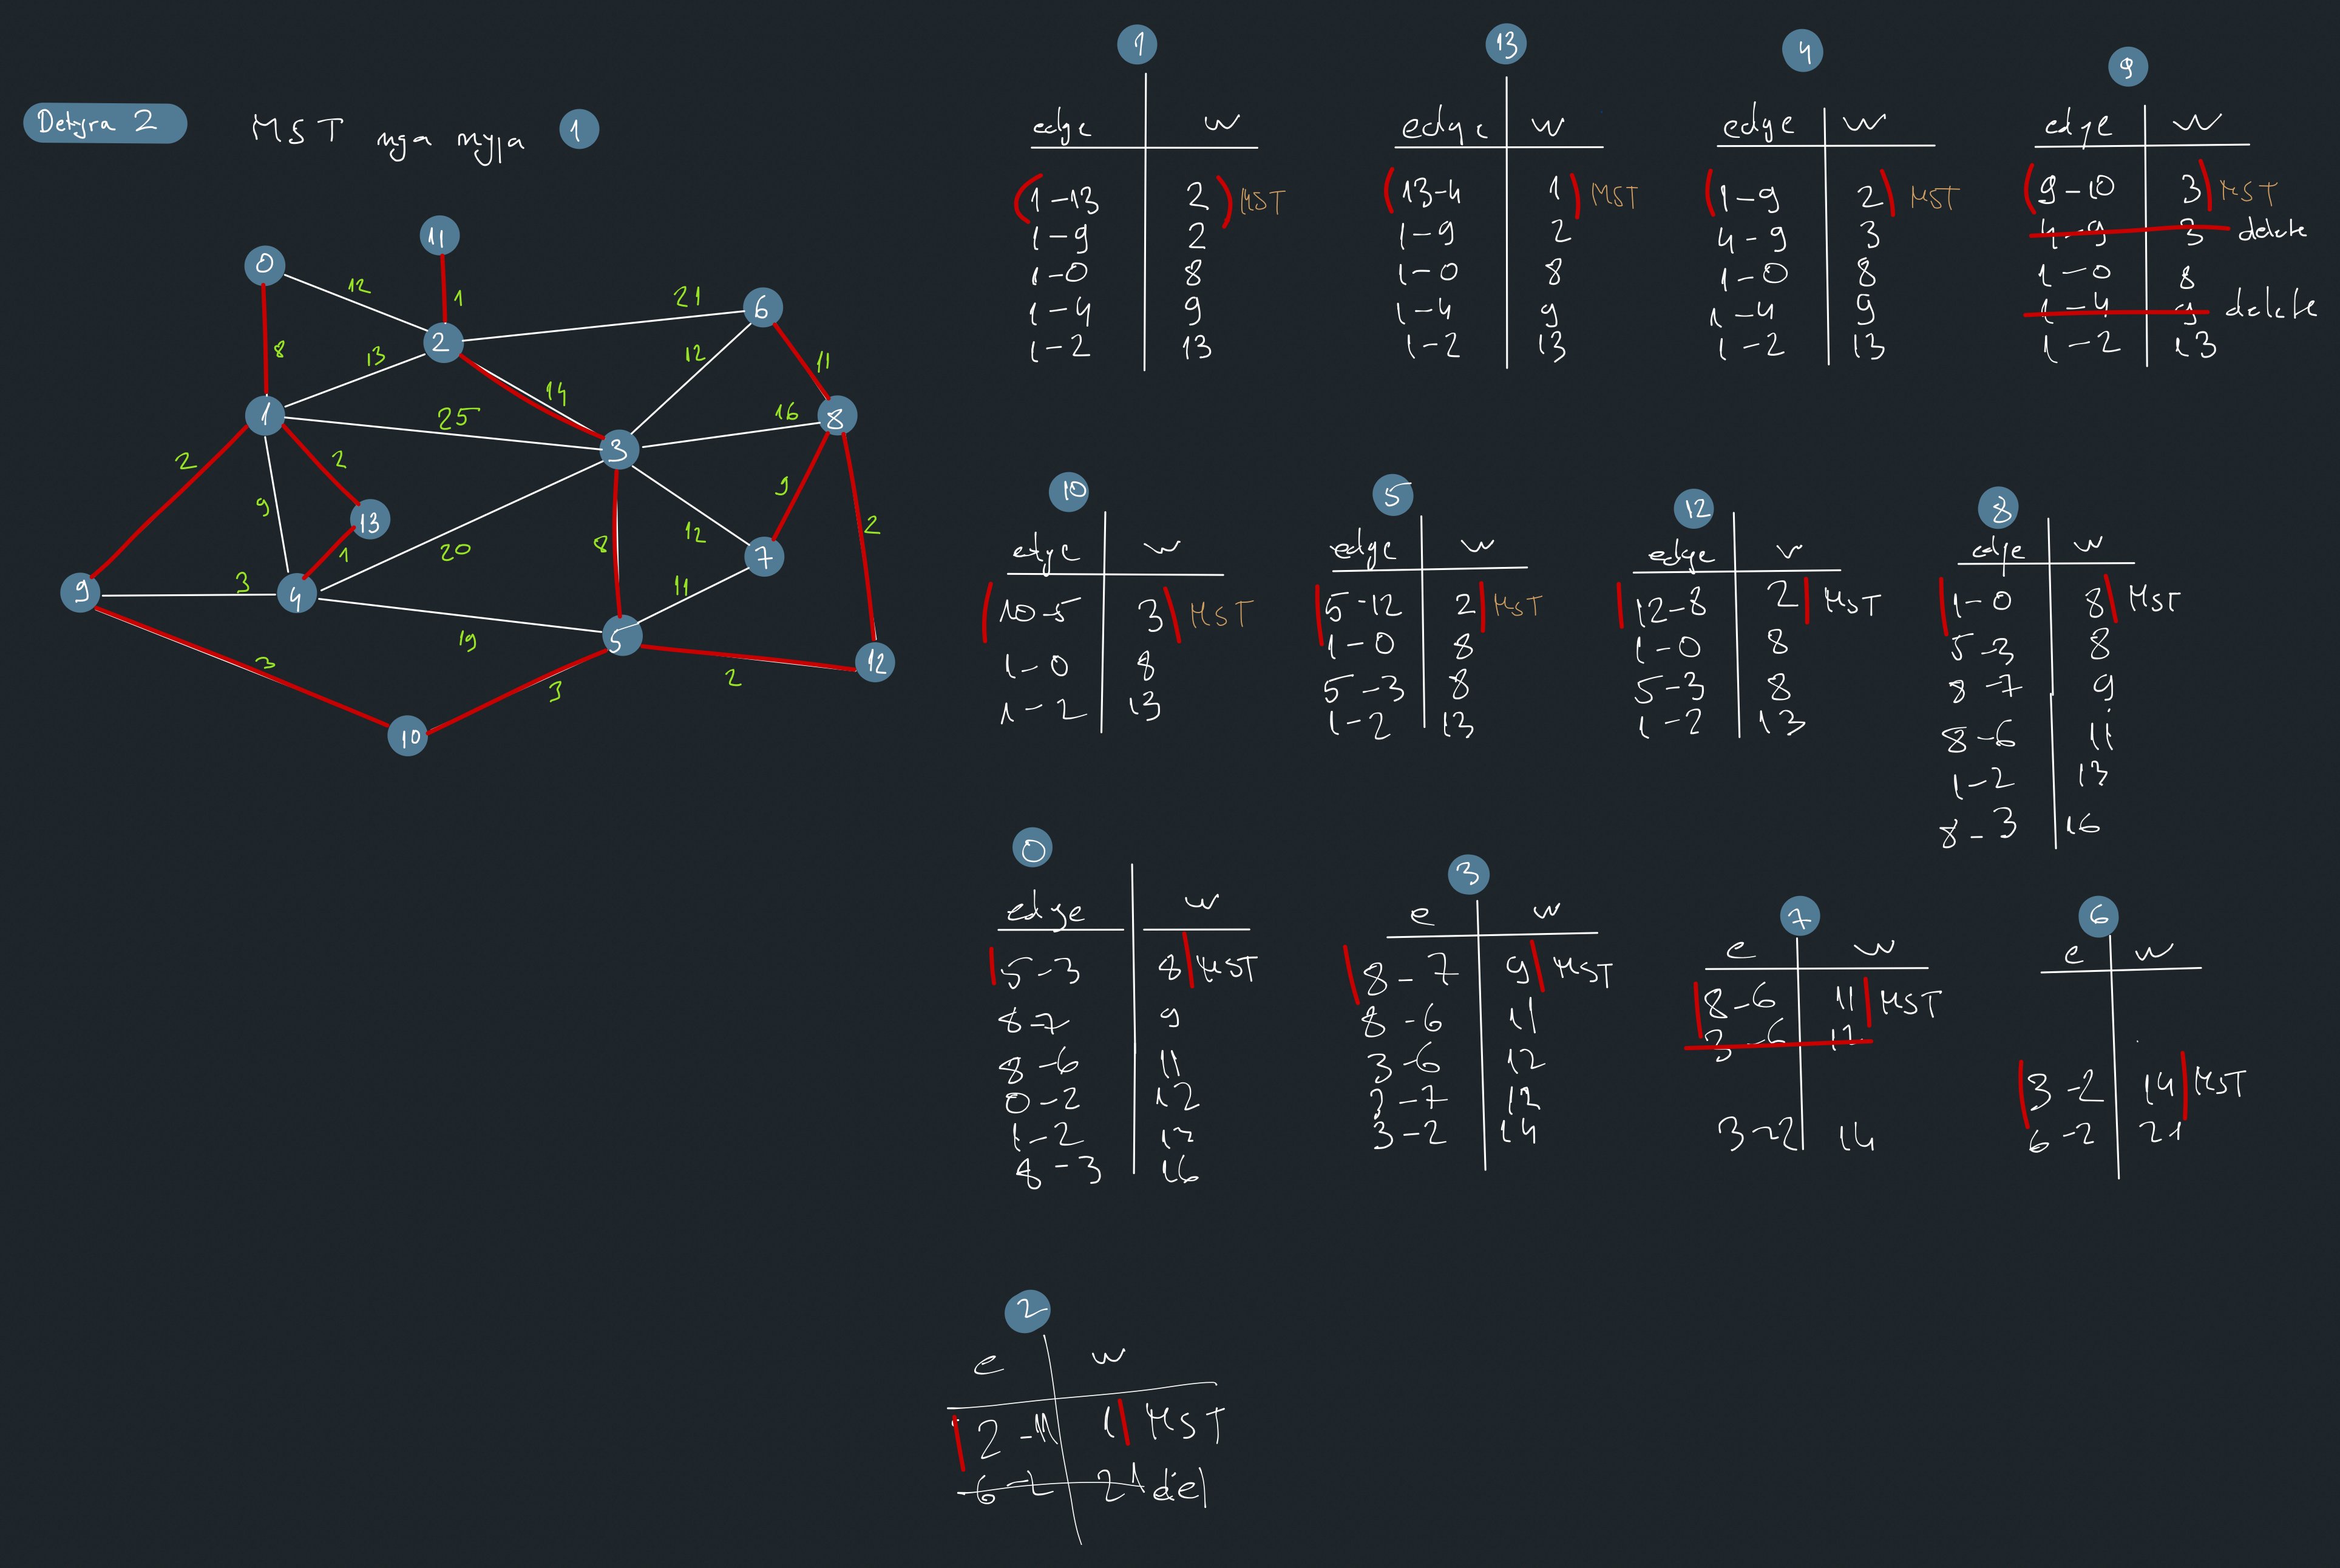 Detyra 2 MST nga nyja 1
11
0
12
1
21
6
2
8
13
12
11
14
25
16
8
1
3
2
2
9
9
13
12
2
20
8
1
7
3
11
9
4
19
5
12
3
2
3
10
1
edge w
1-13 2 MST
1-9 2
1-0 8
1-4 9
1-2 13
13
edge w
13-4 1 MST
1-9 2
1-0 8
1-4 9
1-2 13
4
edge w
1-9 2 MST
4-9 3
1-0 8
1-4 9
1-2 13
9
edge w
9-10 3 MST
4-9 3 delete
1-0 8
1-4 9 delete
1-2 13
10
edge w
10-5 3 MST
1-0 8
1-2 13
5
edge w
5-12 2 MST
1-0 8
5-3 8
1-2 13
12
edge w
12-8 2 MST
1-0 8
5-3 8
1-2 13
8
edge w
1-0 8 MST
5-3 8
8-7 9
8-6 11
1-2 13
8-3 16
0
edge w
5-3 8 MST
8-7 9
8-6 11
0-2 12
1-2 13
8-3 16
3
e w
8-7 9 MST
8-6 11
3-6 12
3-7 12
3-2 14
7
e w
8-6 11 MST
3-6 12
3-2 14
6
e w
3-2 14 MST
6-2 21
2
e w
2-11 1 MST
6-2 21 del